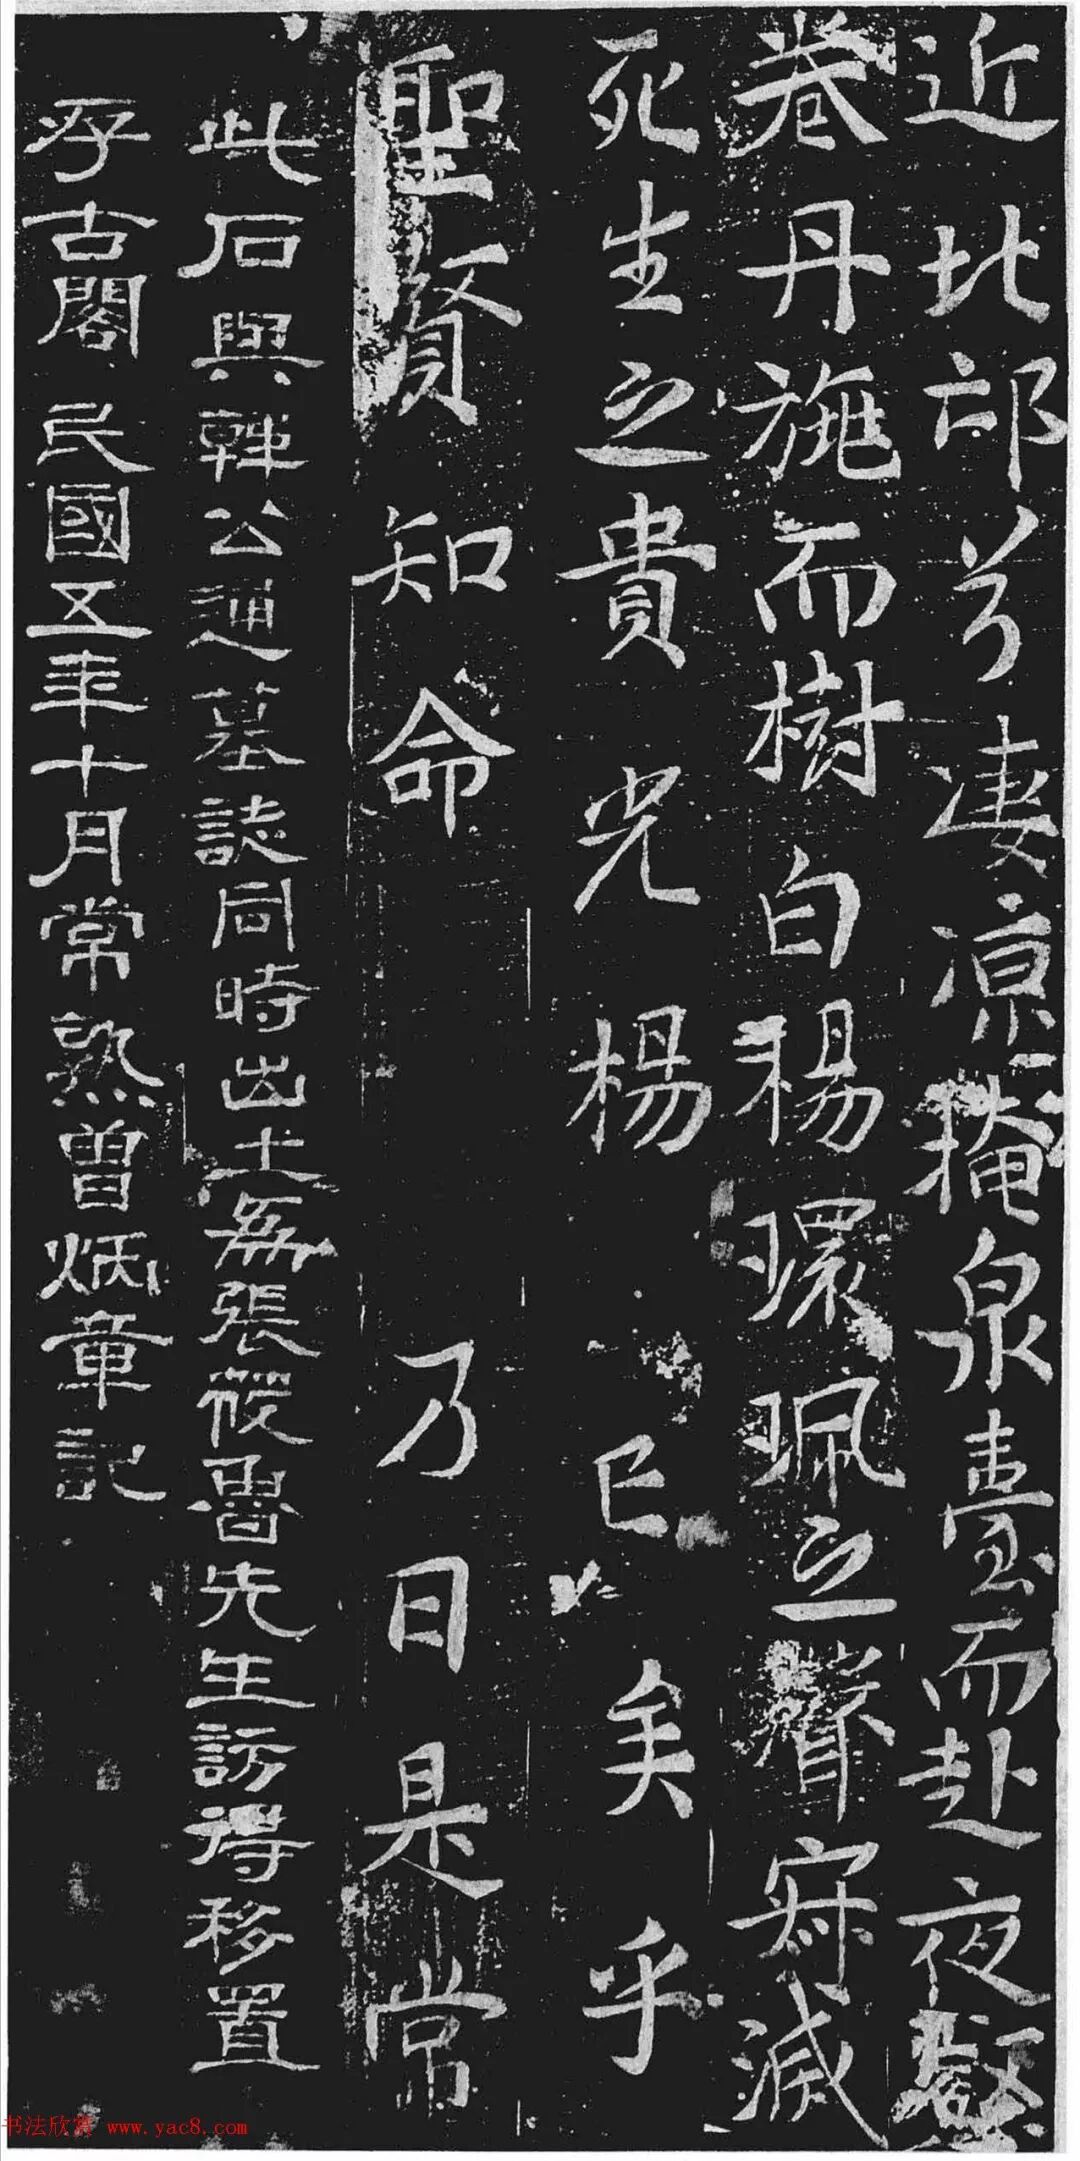 近北邙兮淒涼掩泉臺而赴夜壑
卷丹旐而樹白楊環珮之聲寂滅
死生之貴光楊 已矣乎
聖賢知命 乃日是常
此石與韓公通墓誌同時出土為張筱魯先生訪得移置
存古閣 民國五年十月常熟曾炳章記
书法欣赏 www.yac8.com